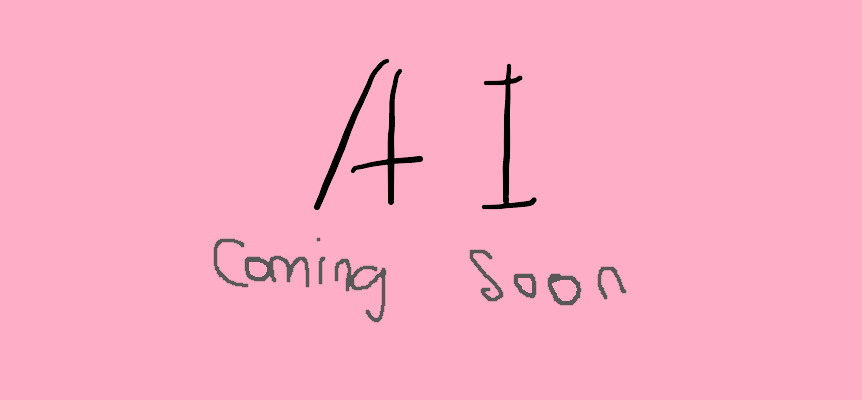 AI
Coming Soon